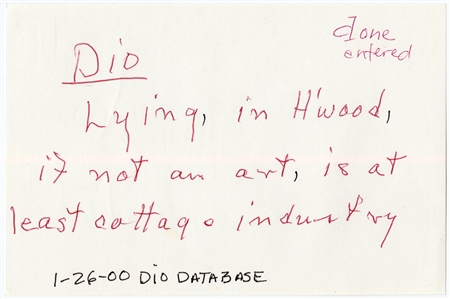 done
entered
Dio
Lying, in H'wood,
if not an art, is at
least cottage industry
1-26-00 DIO DATABASE